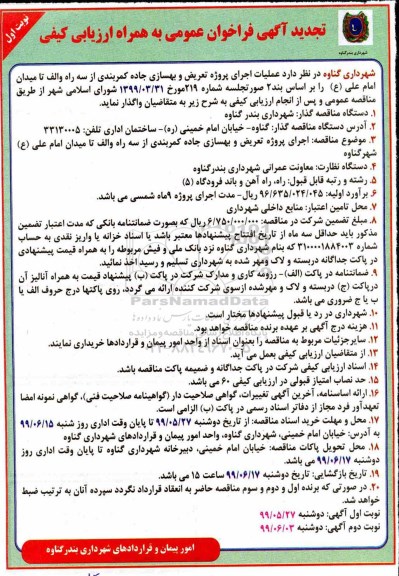 نوبت اول
تجدید آگهی فراخوان عمومی به همراه ارزیابی کیفی
شهرداری بندرگناوه
شهرداری گناوه در نظر دارد عملیات اجرای پروژه تعریض و بهسازی جاده کمربندی از سه راه والف تا میدان
امام علی (ع) را بر اساس بند۲ صورتجلسه شماره ۲۱۹مورخ ۱۳۹۹/۰۳/۳۱ شورای اسلامی شهر از طریق
مناقصه عمومی و پس از انجام ارزیابی کیفی به شرح زیر به متقاضیان واگذار نماید.
۱. دستگاه مناقصه گذار: شهرداری بندر گناوه
۲. آدرس دستگاه مناقصه گذار: گناوه- خیابان امام خمینی (ره)- ساختمان اداری تلفن: ۳۳۱۳۰۰۰۵
۳. موضوع مناقصه: اجرای پروژه تعریض و بهسازی جاده کمربندی از سه راه والف تا میدان امام علی (ع)
شهرگناوه
۴. دستگاه نظارت: معاونت عمرانی شهرداری بندرگناوه
۵. رشته و رتبه قابل قبول: راه، راه آهن و باند فرودگاه (۵)
۶. برآورد اولیه: ۹۶/۶۳۵/۰۲۴/۰۴۵ ریال- مدت اجرای پروژه ۹ماه شمسی می باشد.
۷. محل تامین اعتبار: منابع داخلی شهرداری
۸. مبلغ تضمین شرکت در مناقصه: ۶/۷۵۰/۰۰۰/۰۰۰ ریال که بصورت ضمانتنامه بانکی که مدت اعتبار تضمین
مذکور باید حداقل سه ماه از تاریخ افتتاح پیشنهادها معتبر باشد یا اسناد خزانه یا واریز نقدی به حساب
شماره ۳۱۰۰۰۰۱۸۸۴۰۰۳ که بنام شهرداری گناوه نزد بانک ملی و فیش مربوطه را به همراه قیمت پیشنهادی
در پاکت جداگانه دربسته و لاک ومهر شده به شهرداری تسلیم و رسید اخذ نمائید.
۹. ضمانتنامه در پاکت (الف)- رزومه کاری و مدارک شرکت در پاکت (ب) پیشنهاد قیمت به همراه آنالیز آن
درپاکت (ج) دربسته و لاک و مهرشده ازسوی شرکت کننده ارائه می گردد، روی پاکتها درج حروف الف یا
ب یا ج ضروری می باشد.
۱۰. شهرداری در رد یا قبول پیشنهادها مختار است.
۱۱. هزینه درج آگهی بر عهده برنده مناقصه خواهد بود.
۱۲. سایرجزئیات مربوط به مناقصه را بعنوان اسناد از واحد امور پیمان و قراردادها خریداری نمایند.
۱۳. از متقاضیان ارزیابی کیفی بعمل می آید.
۱۴. اسناد ارزیابی کیفی شرکت در پاکت جداگانه و ضمیمه پاکت مناقصه باشد.
۱۵. حد نصاب امتیاز قبولی در ارزیابی کیفی ۶۰ می باشد.
۱۶. ارائه اساسنامه، آخرین آگهی تغییرات، گواهی صلاحیت دار (گواهینامه صلاحیت فنی)، گواهی نمونه امضا
تعهدآور فرد مجاز از دفاتر اسناد رسمی در پاکت (ب) الزامی است.
۱۷. محل و مهلت خرید اسناد مناقصه: از تاریخ دوشنبه ۹۹/۰۵/۲۷ تا پایان وقت اداری روز شنبه ۹۹/۰۶/۱۵
به آدرس: خیابان امام خمینی، شهرداری گناوه، واحد امور پیمان و قراردادهای شهرداری گناوه
۱۸. محل تحویل پاکات مناقصه: خیابان امام خمینی، دبیرخانه شهرداری گناوه تا پایان وقت اداری روز
دوشنبه ۹۹/۰۶/۱۷ می باشد.
۱۹. تاریخ بازگشایی: تاریخ دوشنبه ۹۹/۰۶/۱۷ ساعت ۱۵ می باشد.
۲۰. در صورتی که برنده اول و دوم و سوم مناقصه حاضر به انعقاد قرارداد نگردد سپرده آنان به ترتیب ضبط
خواهد شد.
نوبت اول آگهی: دوشنبه ۹۹/۰۵/۲۷
نوبت دوم آگهی: دوشنبه ۹۹/۰۶/۰۳
امور پیمان و قراردادهای شهرداری بندرگناوه
ParsNamadData